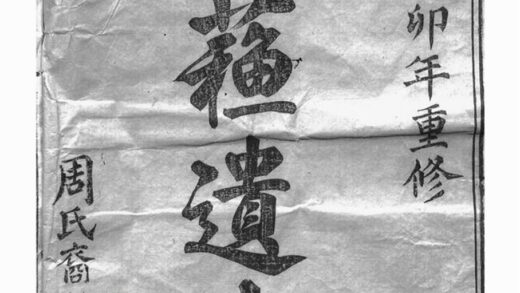 卯年重修
蘓遺
周氏裔